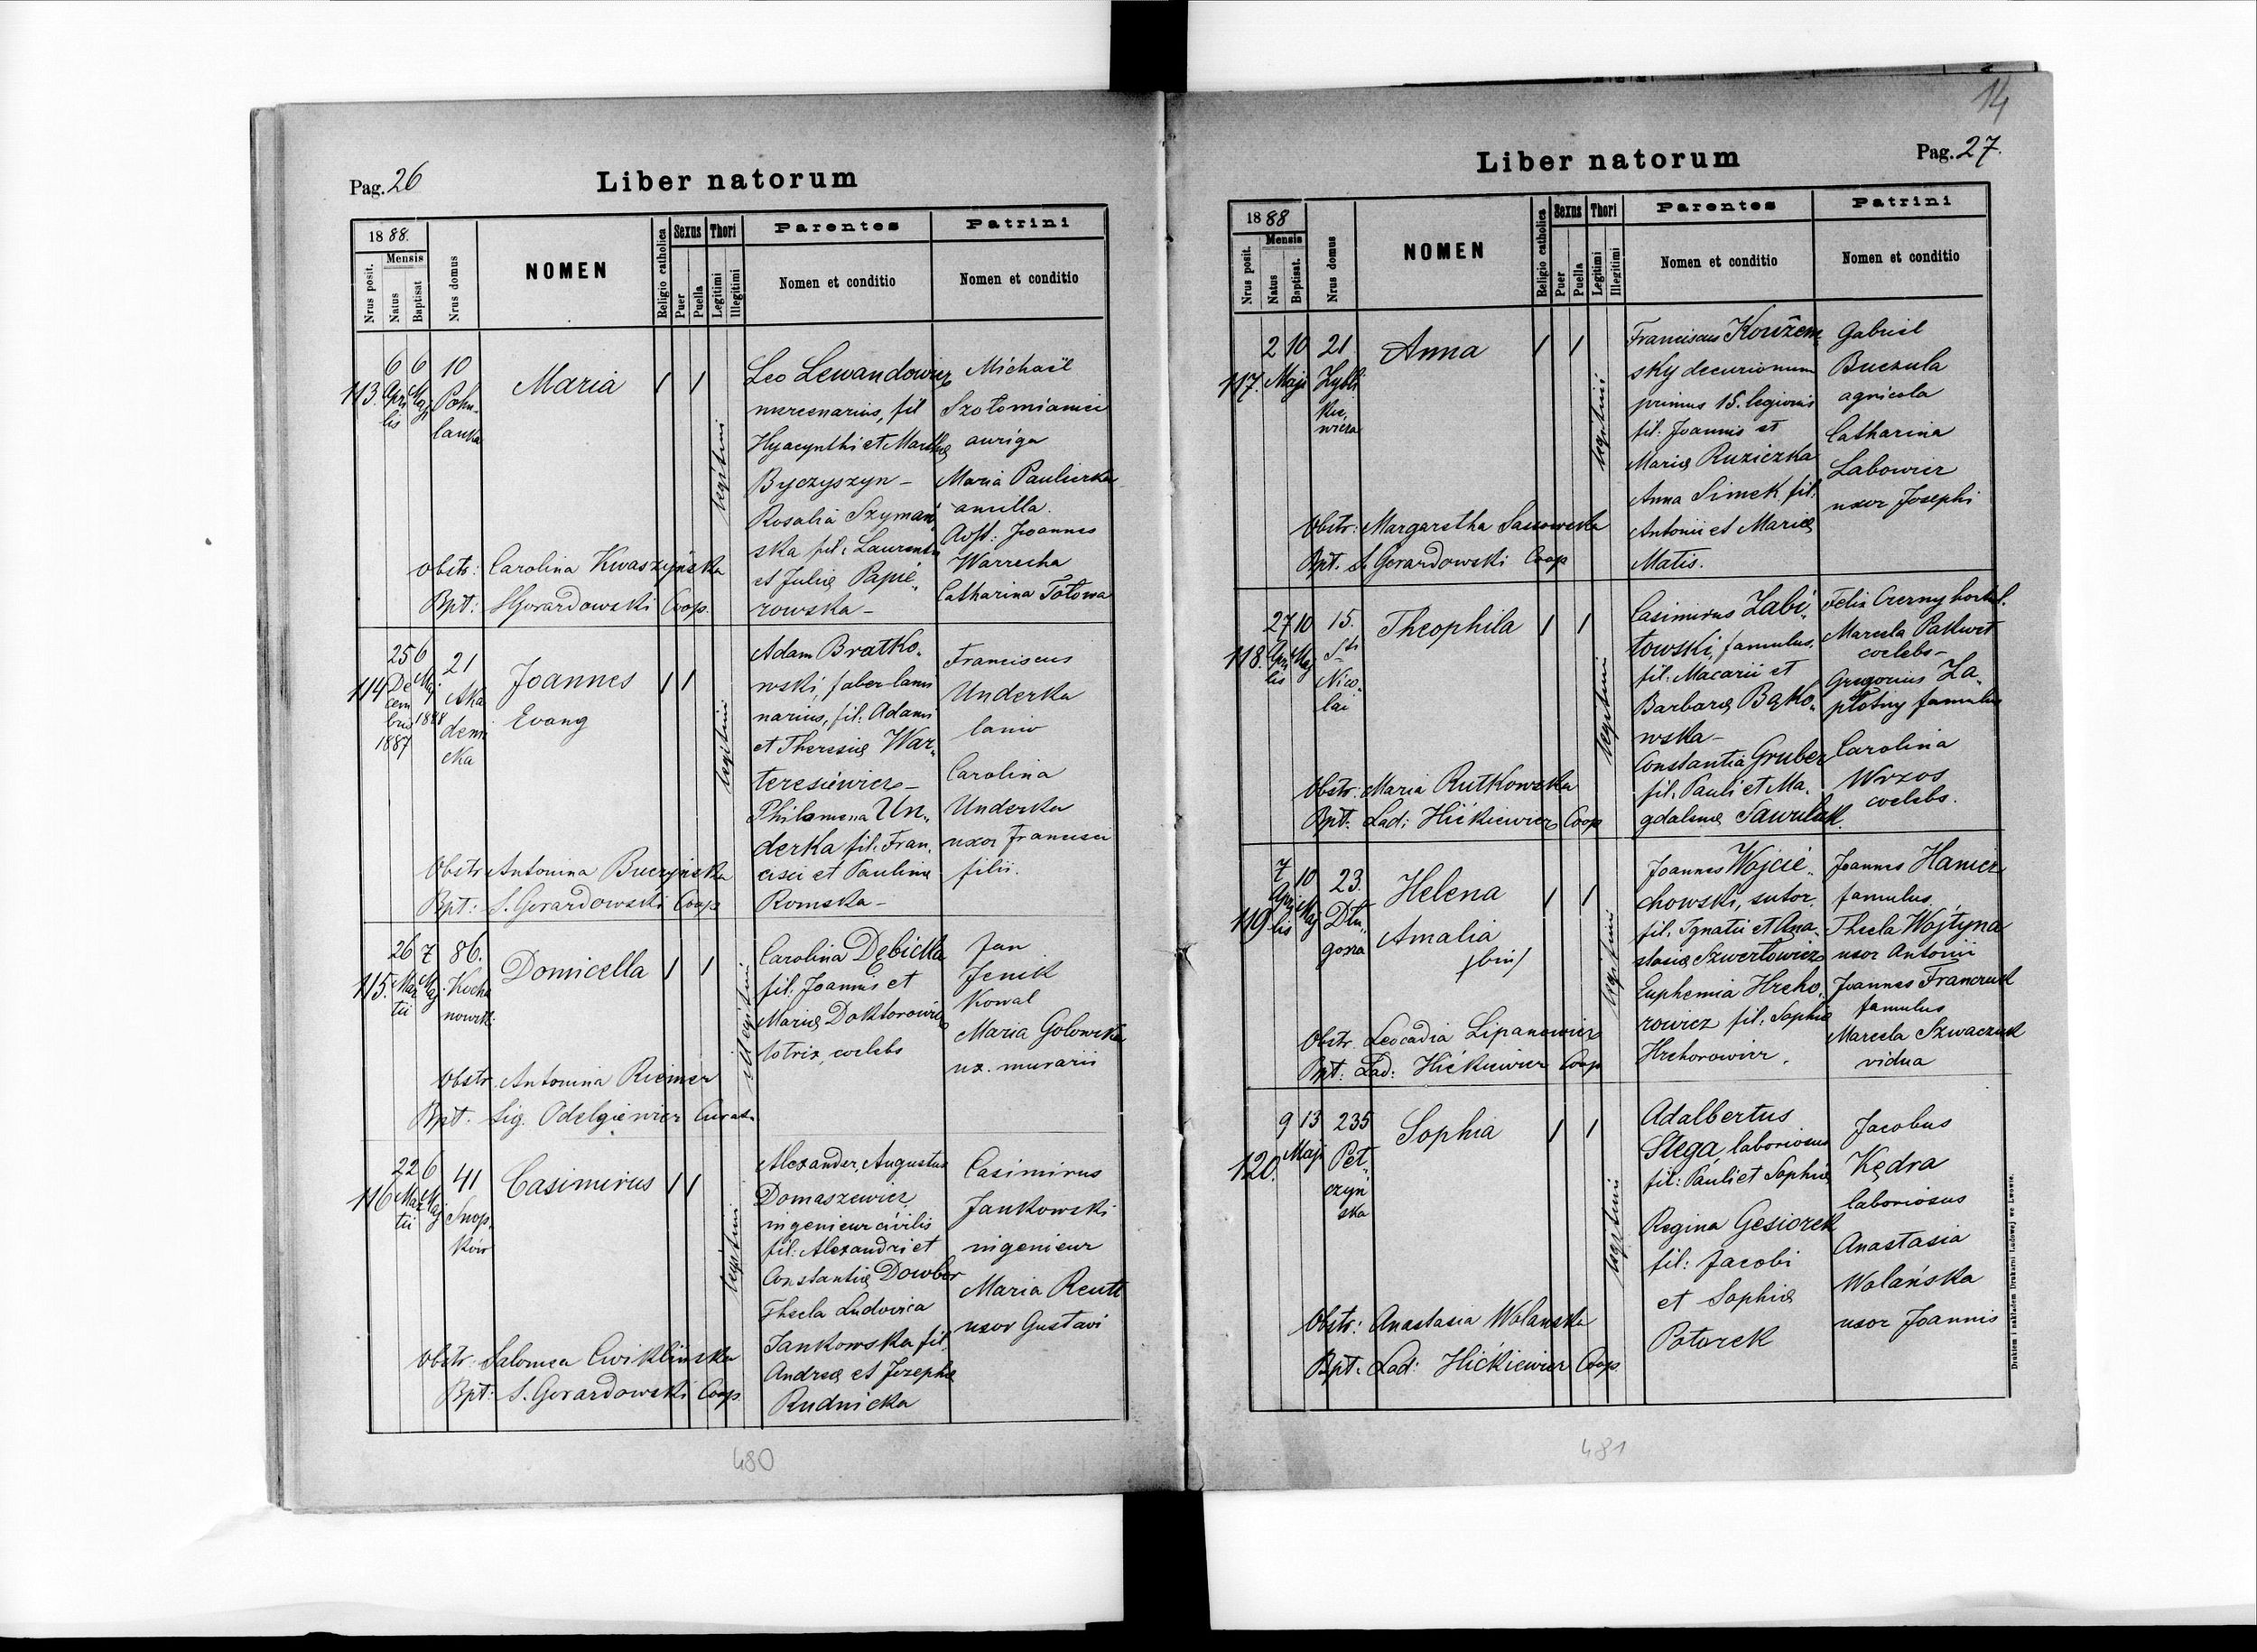 Pag. 26
Liber natorum
1888.
Nrus posit.
Mensis
Natus
Baptisat
Nrus domus
NOMEN
Religio catholica
Sexus
Puer
Puella
Thori
Legitimi
Illegitimi
Parentes
Nomen et conditio
Patrini
Nomen et conditio
113.
6 Apri
lis
6 Maj
10
Pohu-
lanka
Maria
legitimi
Leo Lewandowicz
mercenarius, fil
Hyacynthi et Marthę
Byczyszyn -
Rosalia Szymań
ska fil: Laurentii
et Julię Papie
rowska -
Michaël
Szołomianicz
auriga
Maria Paulierka
ancilla.
Asst: Joannes
Warrecha
Catharina Tołowa
Obstr: Carolina Kwaszyńska
Bpt: S Gerardowski Coop.
114
25 De
cem
bris
1887
6 Maj
1888
21
Aka
demi
cka
Joannes
Evang
legitimi
Adam Bratko-
wski, faber lami
narius, fil: Adami
et Theresię War-
teresiewicz -
Philomena Un-
derka fil: Fran-
cisci et Paulinę
Romska -
Franciscus
Underka
lanio
Carolina
Underka
uxor Francisci
filii.
Obstr Antonina Buczyńska
Bpt: S. Gerardowski Coop
115.
26 Mar
tii
7 Maj
86.
Kocha
nowsk:
Domicella
illegitimi
Carolina Debicka
fil: Joannis et
Marię Doktorowicz
lotrix, coelebs
Jan
Jenik
Kowal
Maria Golowska
ux. murarii
Obstr Antonina Riemer
Bpt. Sig. Odelgiewicz Curat.
116
22 Mar
tii
6 Maj
41
Snop-
ków
Casimirus
legitimi
Alexander, Augustus
Domaszewicz
ingenieur civilis
fil: Alexandri et
Constantię Dowbor
Thecla Ludovica
Jankowska fil.
Andreę et Josephę
Rudnicka
Casimirus
Jankowski
ingenieur
Maria Reutt
uxor Gustavi
Obstr: Salomea Cwiklińska
Bpt: S. Gerardowski Coop.
480
14
Pag. 27.
Liber natorum
1888
Nrus posit.
Mensis
Natus
Baptisat.
Nrus domus
NOMEN
Religio catholica
Sexus
Puer
Puella
Thori
Legitimi
Illegitimi
Parentes
Nomen et conditio
Patrini
Nomen et conditio
117.
2 10
Maji
21
Zybli
kie,
wicza
Anna
legitimi
Franciscus Kowžem
sky decurionum
primus 15. legionis
fil: Joannis et
Marię Ruziczka
Anna Simek fil:
Antonii et Marię
Matis.
Gabriel
Buczula
agricola
Catharina
Labowicz
uxor Josephi
Obstr: Margaretha Sassowska
Bpt. S. Gerardowski Coop
118.
27 Apri
lis
10 Maj
15.
Sti
Nico-
lai
Theophila
legitimi
Casimirus Zabi-
towski, famulus,
fil: Macarii et
Barbarę Bąko-
wska -
Constantia Gruber
fil: Pauli et Ma-
gdalenę Sawulak.
Felix Czerny hortul.
Marcela Pakwet
coelebs -
Gregorius Za-
płotny famulus
Carolina
Wrzos
coelebs.
Obstr: Maria Rutkowska
Bpt: Lad: Hićkiewicz Coop
119
7 Apri
lis
10 Maj
23.
Dłu-
gosza
Helena
Amalia
/bin/
legitimi
Joannes Wojcie-
chowski, sutor.
fil: Ignatii et Ana-
stasię Szwertowicz
Euphemia Hreho-
rowicz fil: Sophię
Hrehorowicz.
Joannes Hanicz
famulus
Thecla Wojtyna
uxor Antonii
Joannes Franczuk
famulus
Marcela Szwaczuk
vidua
Obstr. Leocadia Lipanowicz
Bpt: Lad: Hićkiewicz Coop
120.
9 13
Maji
235
Peł-
czyn
ska
Sophia
legitimi
Adalbertus
Slega, laboriosus
fil: Pauli et Sophię
Regina Gesiorek
fil: Jacobi
et Sophię
Potorek
Jacobus
Kędra
laboriosus
Anastasia
Wolańska
uxor Joannis
Obstr: Anastasia Wolanska
Bpt: Lad: Hićkiewicz Coop
Drukiem i nakładem Drukarni Ludowej we Lwowie.
481